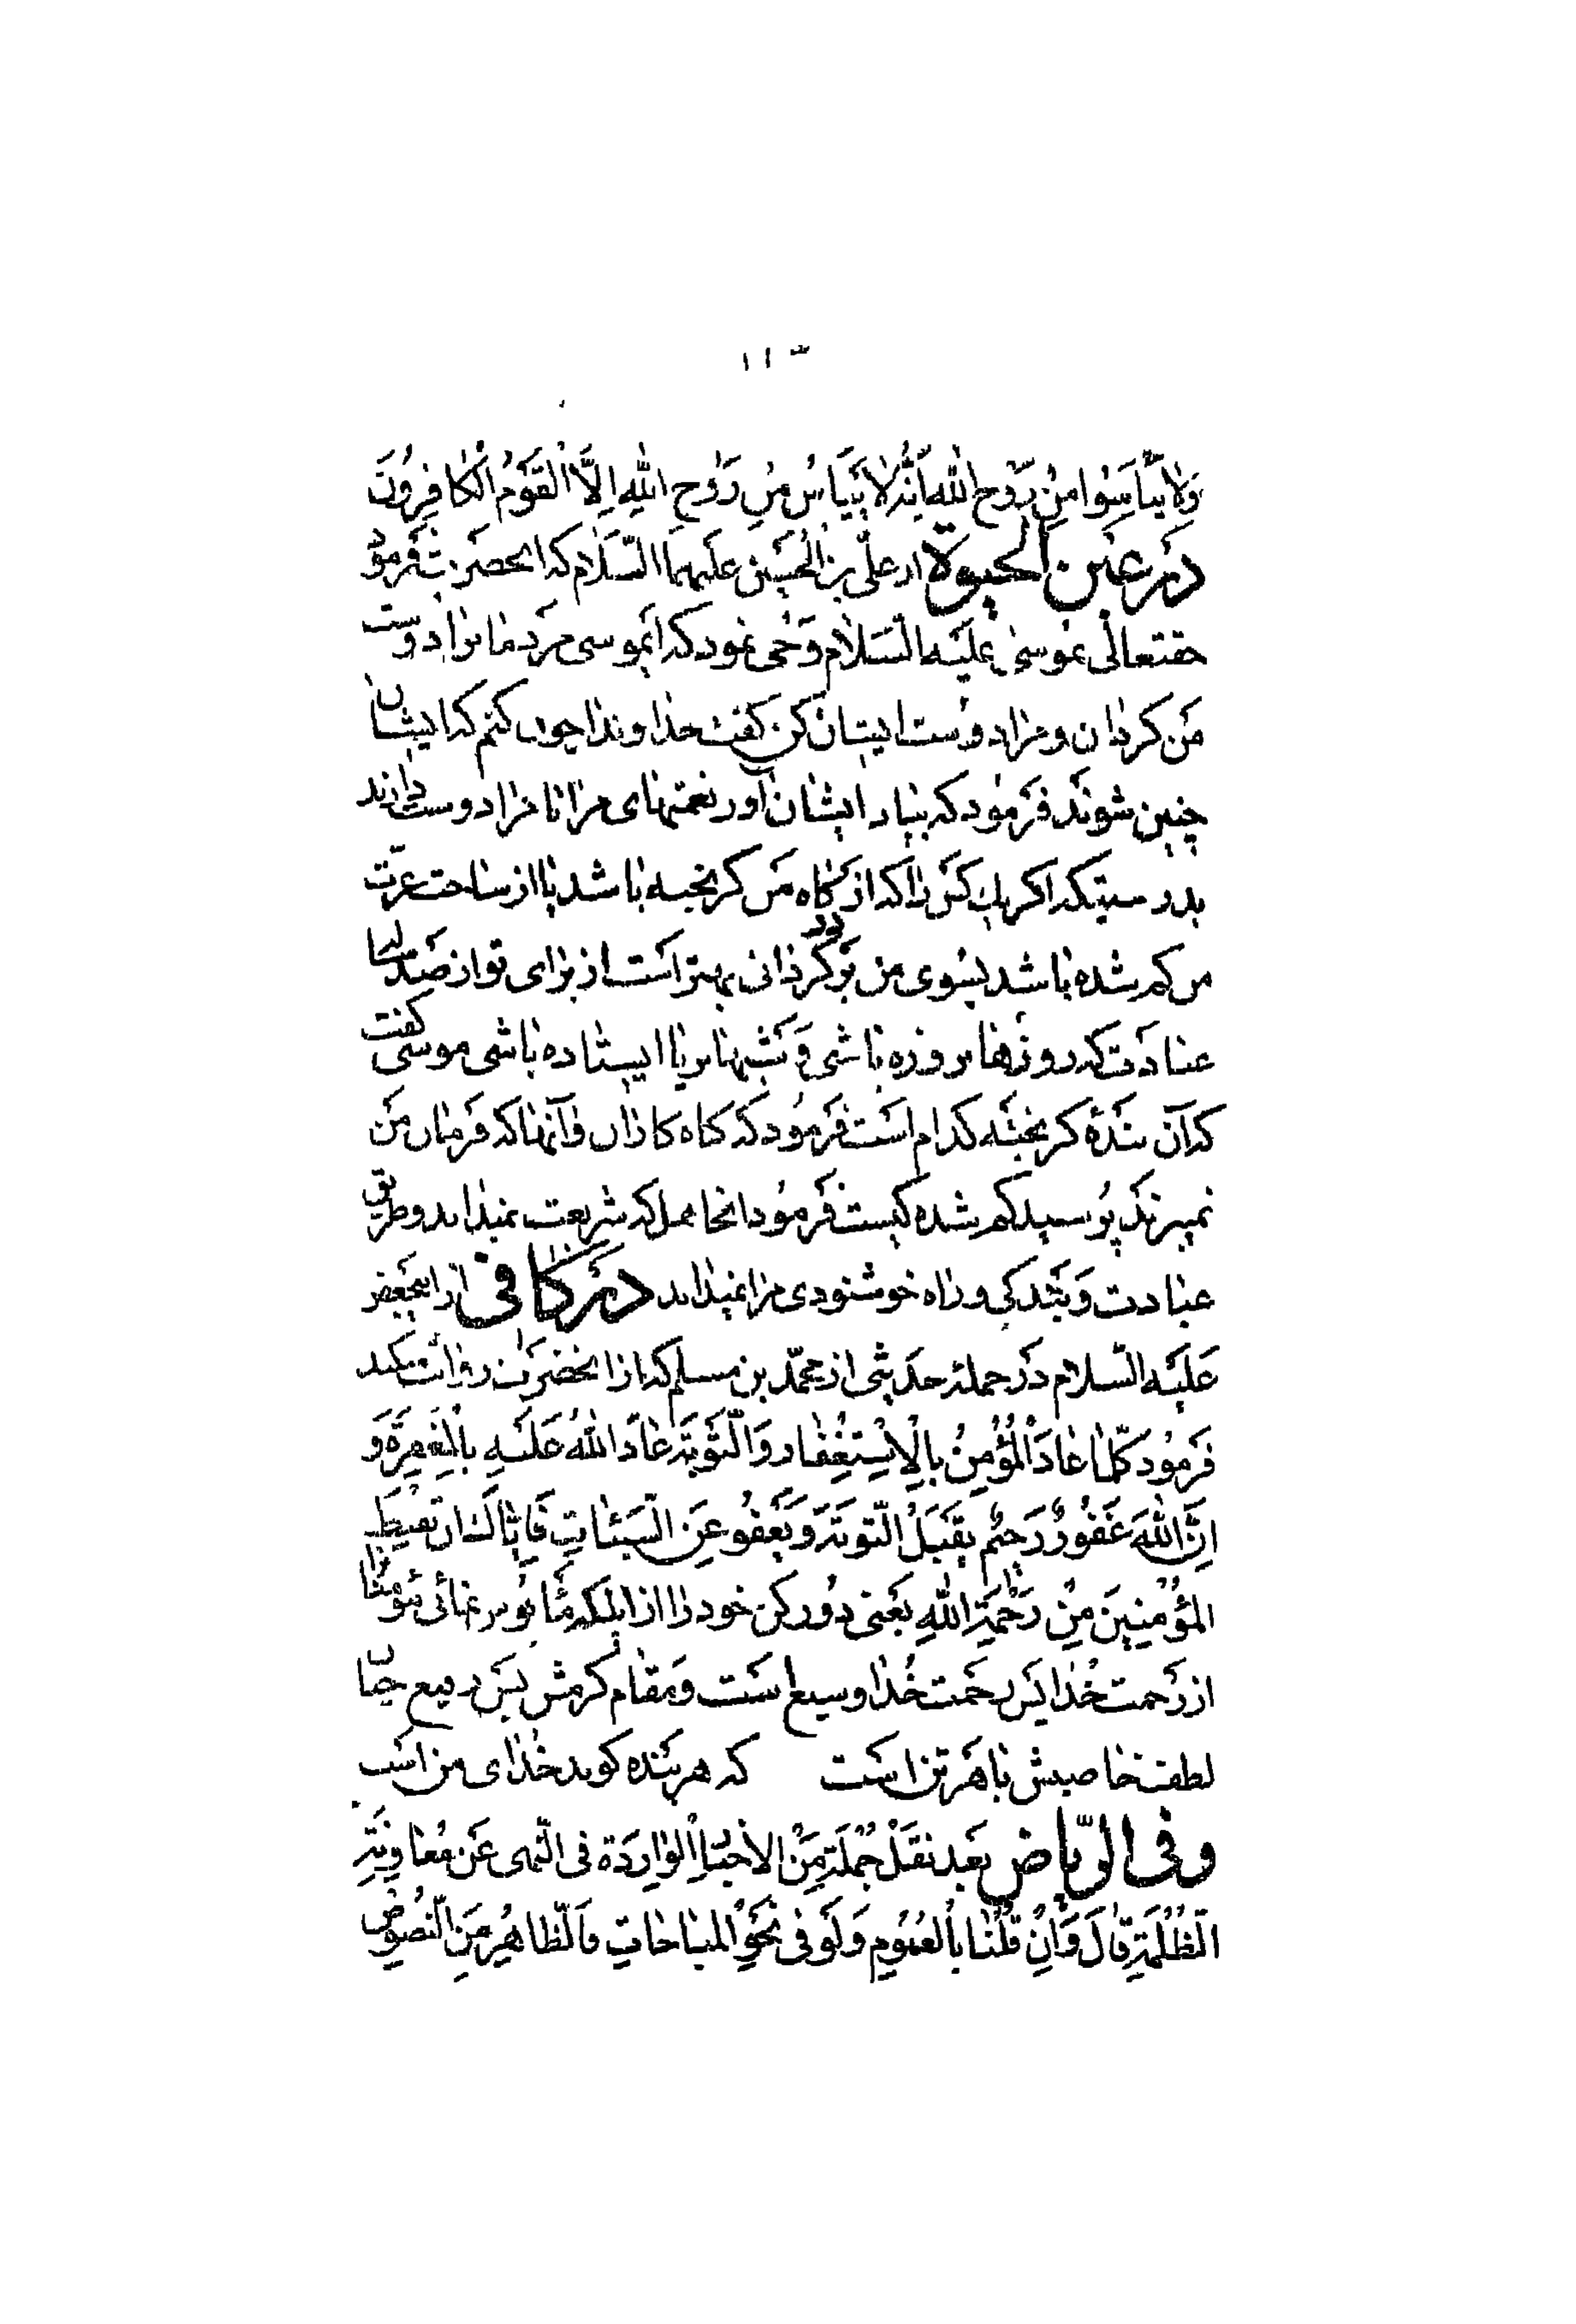 ۱۱۳
وَلا یَیْأَسُوا مِنْ رَوْحِ اللهِ اِنَّهُ لا یَیْأَسُ مِنْ رَوْحِ اللهِ اِلَّا الْقَوْمُ الْکافِرُونَ
در عین الحیوة از علی بن الحسین علیهما السّلام که انحضرت فرمود
حقتعالی بموسی علیه السّلام وحی نمود که ایموسی مردمانرا دوست
من کردان و مرا دوست ایشان کن کفت خداوندا چون کنم که ایشان
چنین شوند فرمود که بیاد ایشان آور نعمتهای مرا تا مرا دوست دارند
بدرستیکه اکر یک کس را که از درکاه من کریخته باشد یا از ساحت عزّت
من کم شده باشد بسوی من برکردانی بهتر است از برای تو از صد ساله
عبادت که روزها بروزه باشی و شبها برپا ایستاده باشی موسی کفت
که آن بندهٔ کریخته کدام است فرمود که کناه کاران و آنها که فرمان من
نمیبرند پرسید کم شده کیست فرمود انجاهل که شریعت نمیداند و طریق
عبادت و بندکی و راه خوشنودی مرا نمیداند در کافی از ابیجعفر
علیه السّلام در جمله حدیثی از محمّد بن مسلم که از انحضرت روایت کند
فرمود کلّما عادَ الْمُؤْمِنُ بِالْاِسْتِغْفار وَالتَّوْبَةِ عادَ اللهُ عَلَیْهِ بِالْمَغْفِرَةِ وَ
اِنَّ اللهَ غَفُورٌ رَحیمٌ یَقْبَلُ التَّوبَةَ وَ یَعْفُو عَنِ السَّیِّئاتِ فَاِیّاکَ ان تقنط
المُؤْمِنینَ مِنْ رَحْمَةِ اللهِ یعنی دور کن خود را از اینکه مأیوس نمائی مؤمنان را
از رحمت خدا پس رحمت خدا وسیع است و مقام کرمش بس رفیع
لطفت خاصیش با هر تن است که هر بنده کوید خدای من است
و فی الرّیاض بعد نقل جُمْلَةٍ مِنَ الاخبار الوارِدَة فی النّهی عَن مُعاوَنَةِ
الظَّلَمَةِ قالَ وَ اِنْ قُلْنا بِالعُمُومِ وَ لَوْ فی نَحْوِ المباحاتِ فالظّاهِرُ مِنَ النُّصُوصِ